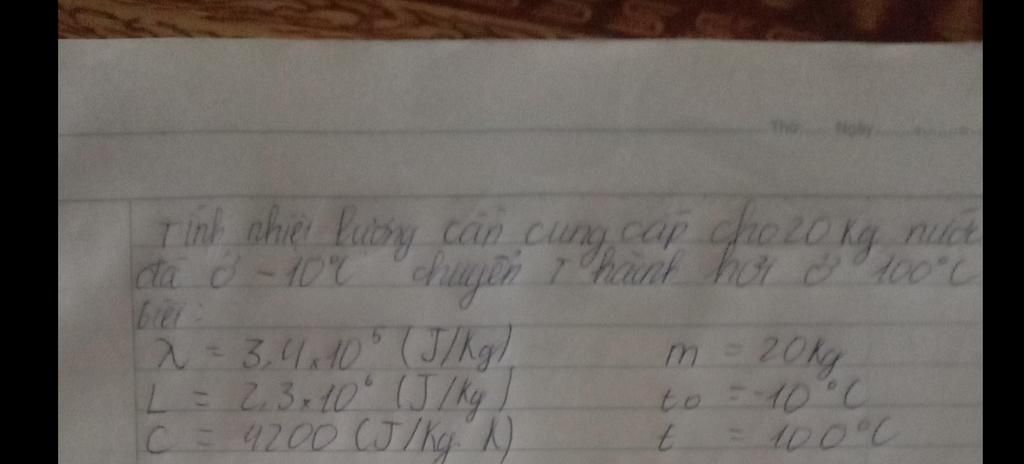 Thứ Ngày
Tính nhiệt lượng cần cung cấp cho 20 Kg nước
đá ở -10°C chuyển thành hơi ở 100°C
biết:
λ = 3,4 × 10⁵ (J/Kg) m = 20 Kg
L = 2,3 × 10⁶ (J/Kg) to = -10°C
C = 4200 (J/Kg. K) t = 100°C